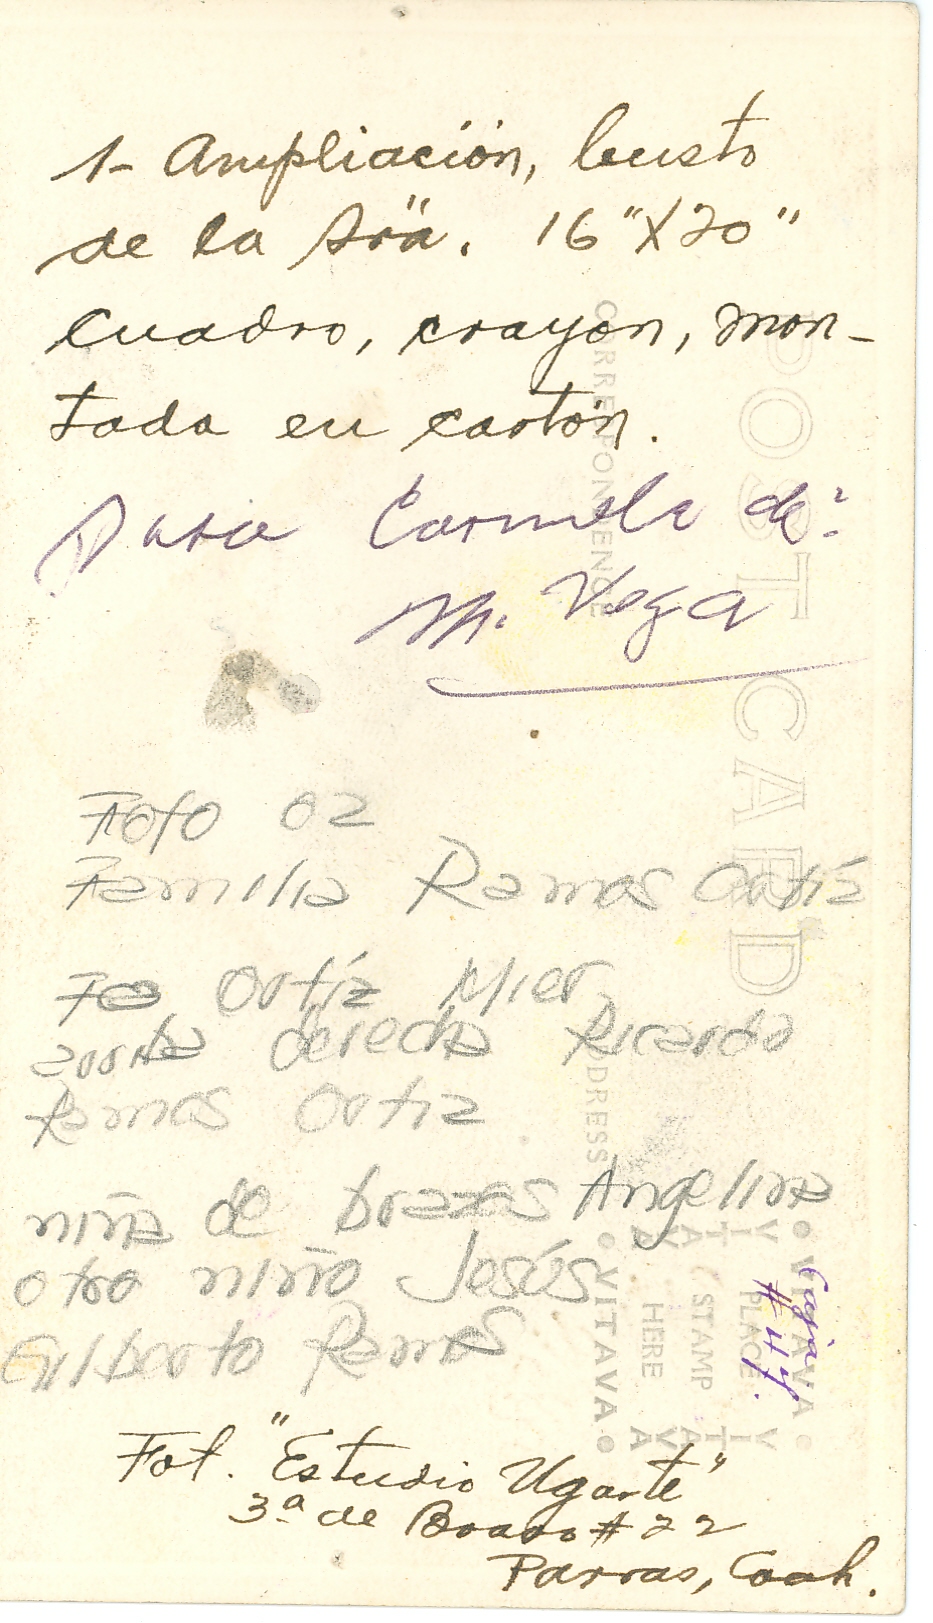 1- Ampliación, busto
de la Sra. 16"X20"
cuadro, crayon, mon-
tada en cartón.
Para Carmela de
M. Vega
Foto 02
Familia Ramos Ortiz
Fco Ortiz Mier
arriba derecha Ricardo
Ramos Ortiz
niña de brazos Angelina
otro niño Jesús
Gilberto Ramos
Fot. "Estudio Ugarte"
3ª de Bravo # 22
Parras, Coah.
POST CARD
CORRESPONDENCE
ADDRESS
VITAVA
PLACE
STAMP
HERE
VITAVA
Caja
# 44.